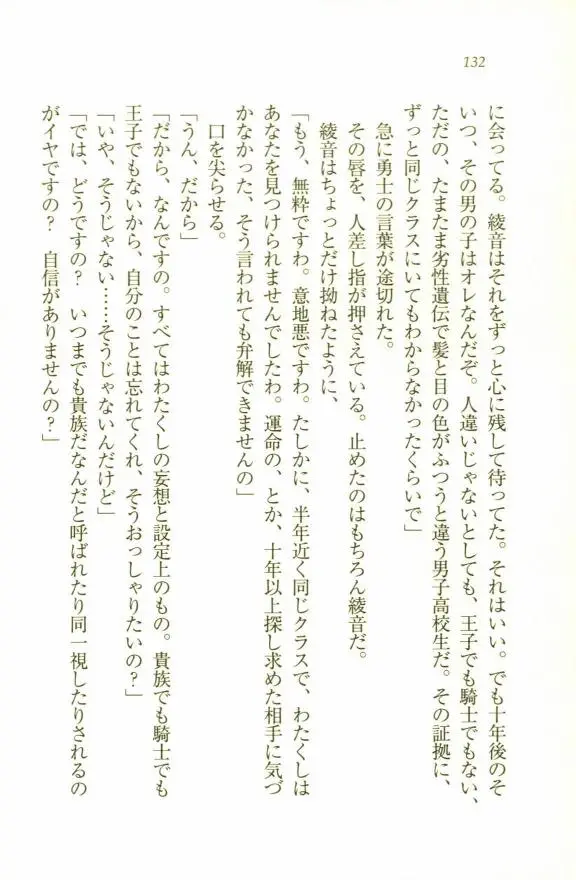 132
に会ってる。綾音はそれをずっと心に残して待ってた。それはいい。でも十年後のそ
いつ、その男の子はオレなんだぞ。人違いじゃないとしても、王子でも騎士でもない、
ただの、たまたま劣性遺伝で髪と目の色がふつうと違う男子高校生だ。その証拠に、
ずっと同じクラスにいてもわからなかったくらいで」
急に勇士の言葉が途切れた。
その唇を、人差し指が押さえている。止めたのはもちろん綾音だ。
綾音はちょっとだけ拗ねたように、
「もう、無粋ですわ。意地悪ですわ。たしかに、半年近く同じクラスで、わたくしは
あなたを見つけられませんでしたわ。運命の、とか、十年以上探し求めた相手に気づ
かなかった、そう言われても弁解できませんの」
口を尖らせる。
「うん、だから」
「だから、なんですの。すべてはわたくしの妄想と設定上のもの。貴族でも騎士でも
王子でもないから、自分のことは忘れてくれ、そうおっしゃりたいの？」
「いや、そうじゃない……そうじゃないんだけど」
「では、どうですの？　いつまでも貴族だなんだと呼ばれたり同一視したりされるの
がイヤですの？　自信がありませんの？」